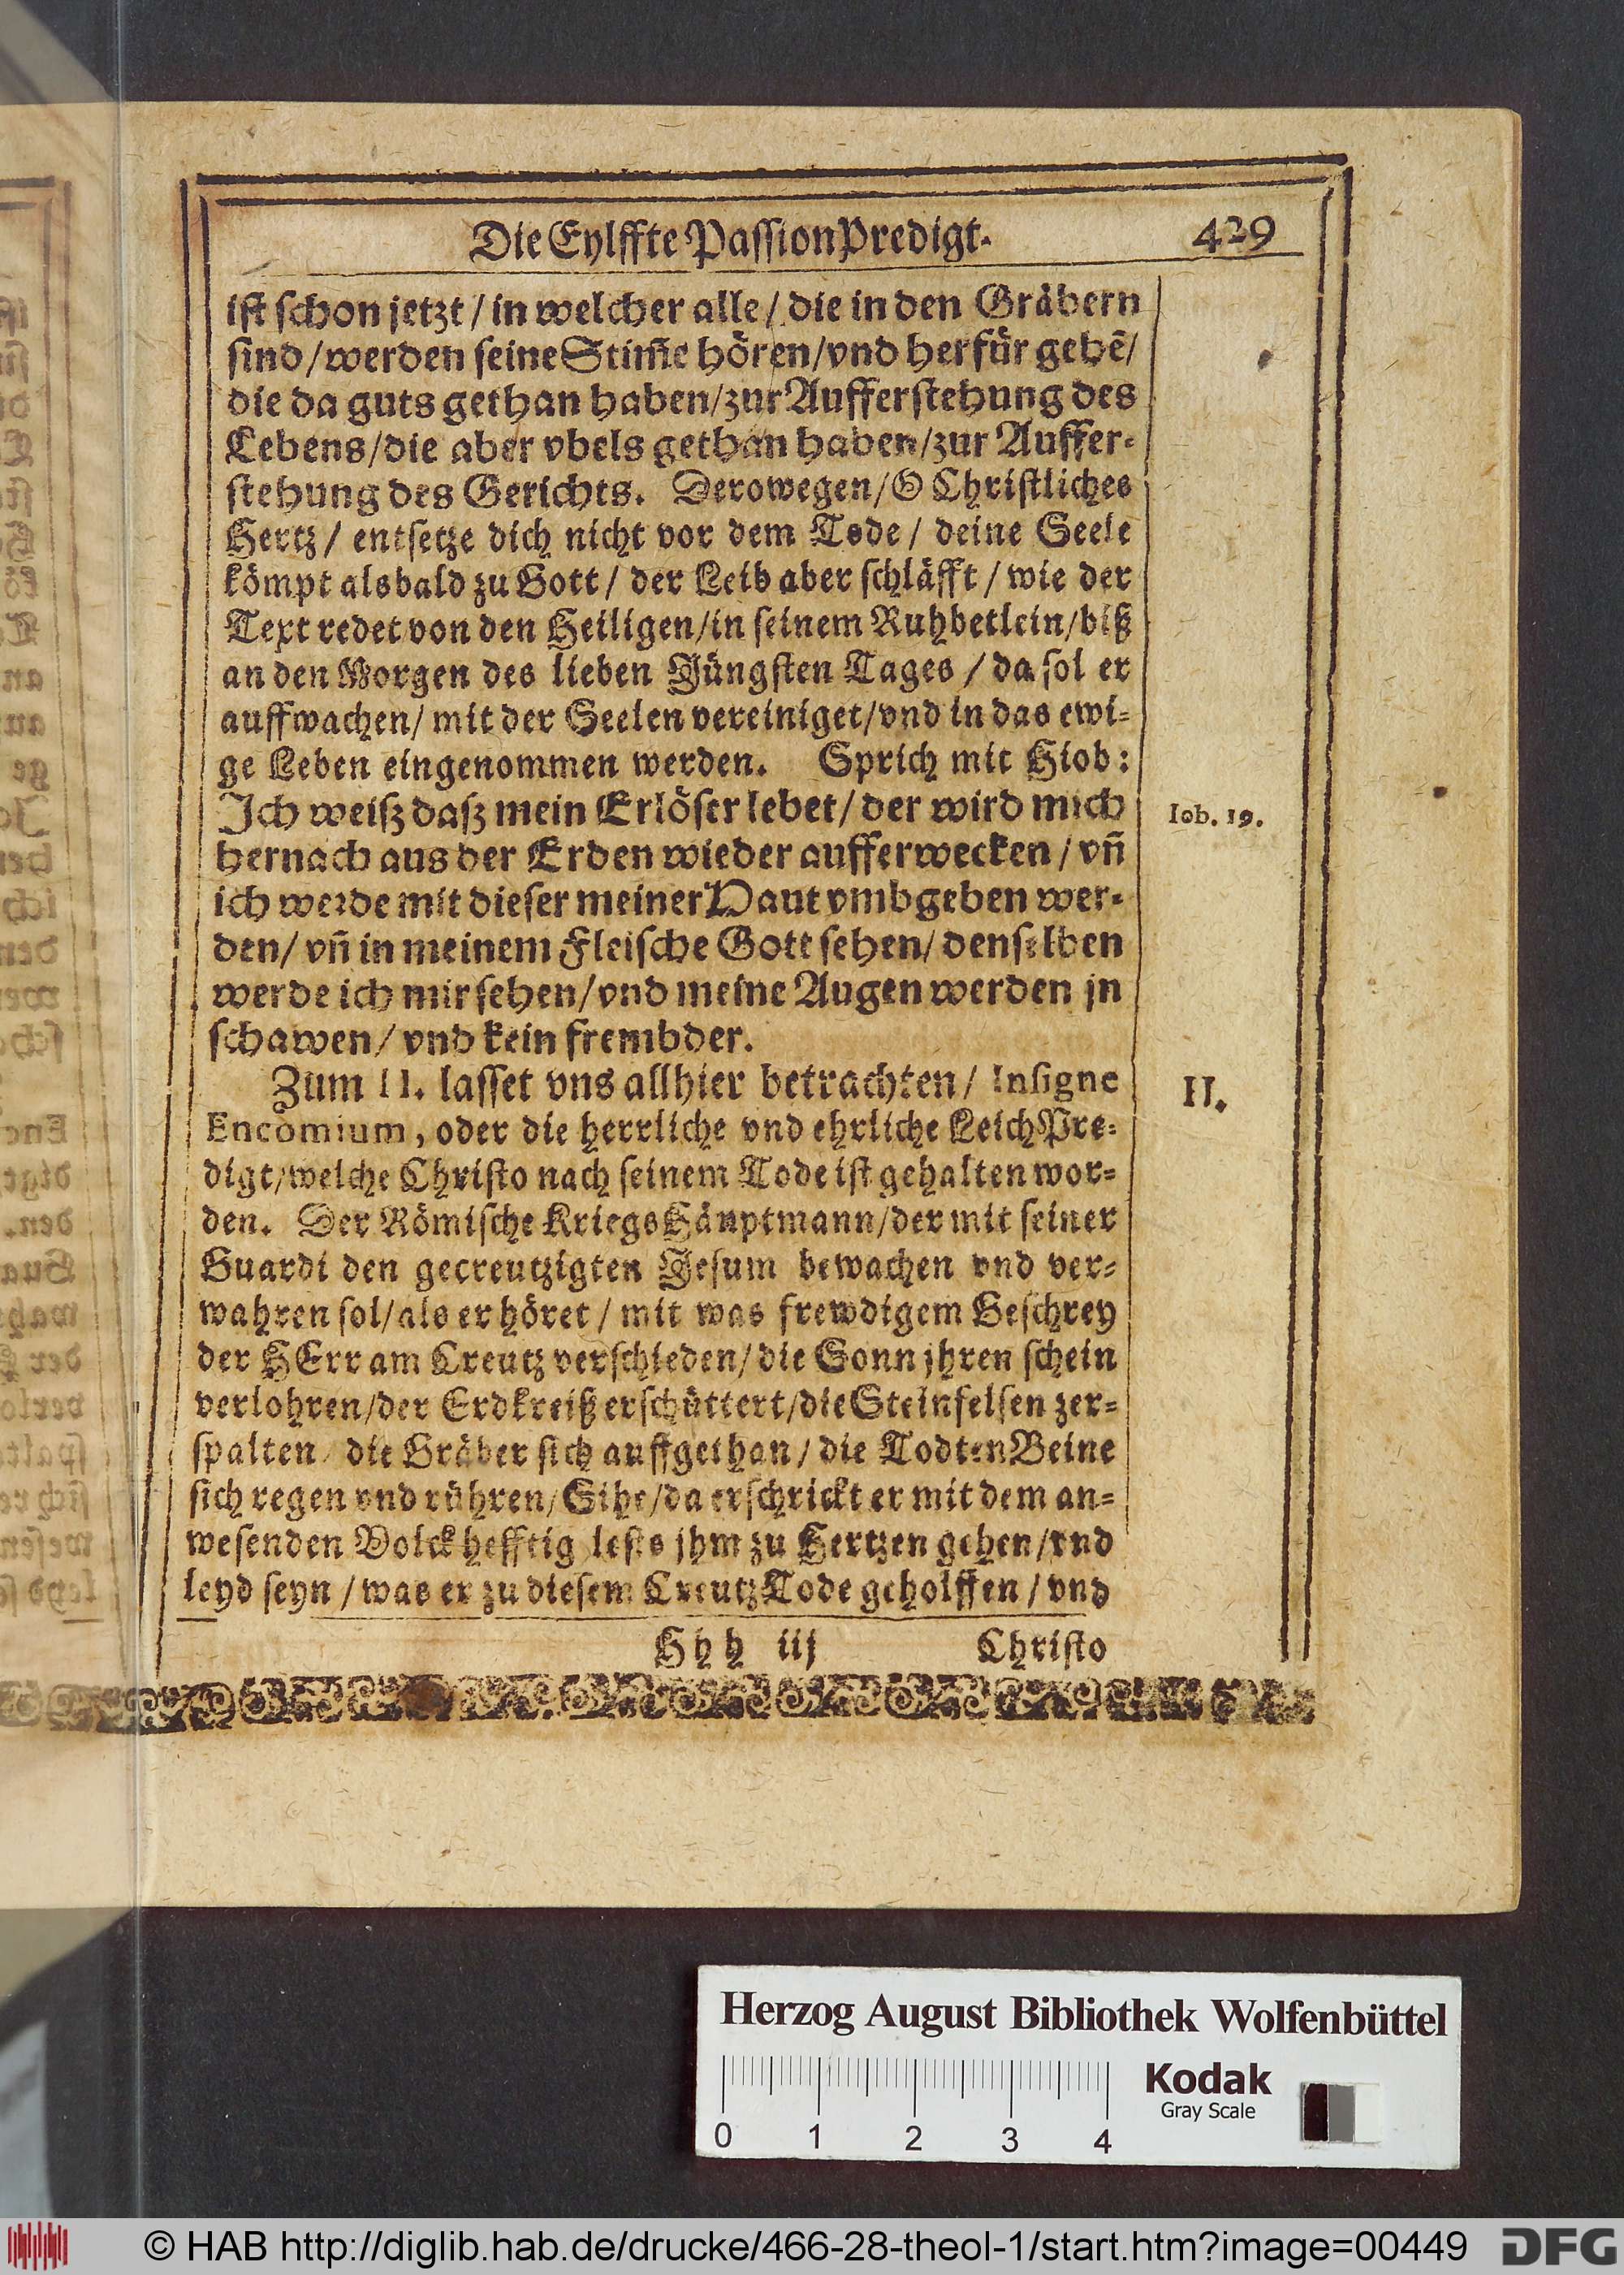 Die Eylffte PassionPredigt. 429
ist schon jetzt / in welcher alle / die in den Gräbern
sind / werden seine Stim̃e hören / vnd herfür gehẽ /
die da guts gethan haben / zur Aufferstehung des
Lebens / die aber vbels gethan haben / zur Auffer-
stehung des Gerichts. Derowegen / O Christliches
Hertz / entsetze dich nicht vor dem Tode / deine Seele
kömpt alsbald zu Gott / der Leib aber schläfft / wie der
Text redet von den Heiligen / in seinem Ruhbetlein / biß
an den Morgen des lieben Jüngsten Tages / da sol er
auffwachen / mit der Seelen vereiniget / vnd in das ewi-
ge Leben eingenommen werden. Sprich mit Hiob:
Ich weiß daß mein Erlöser lebet / der wird mich
Iob. 19.
hernach aus der Erden wieder aufferwecken / vñ
ich werde mit dieser meiner Haut vmbgeben wer-
den / vñ in meinem Fleische Gott sehen / denselben
werde ich mir sehen / vnd meine Augen werden jn
schawen / vnd kein frembder.
Zum II. lasset vns allhier betrachten / Insigne
II.
Encomium, oder die herrliche vnd ehrliche LeichPre-
digt / welche Christo nach seinem Tode ist gehalten wor-
den. Der Römische KriegsHäuptmann / der mit seiner
Guardi den gecreutzigten Jesum bewachen vnd ver-
wahren sol / als er höret / mit was frewdigem Geschrey
der HErr am Creutz verschieden / die Sonn jhren schein
verlohren / der Erdkreiß erschüttert / die Steinfelsen zer-
spalten / die Gräber sich auffgethan / die TodtenBeine
sich regen vnd rühren / Sihe / da erschrickt er mit dem an-
wesenden Volck hefftig / lests jhm zu Hertzen gehen / vnd
leyd seyn / was er zu diesem CreutzTode geholffen / vnd
Hhh iij Christo
Herzog August Bibliothek Wolfenbüttel
Kodak
Gray Scale
0 1 2 3 4
© HAB http://diglib.hab.de/drucke/466-28-theol-1/start.htm?image=00449 DFG